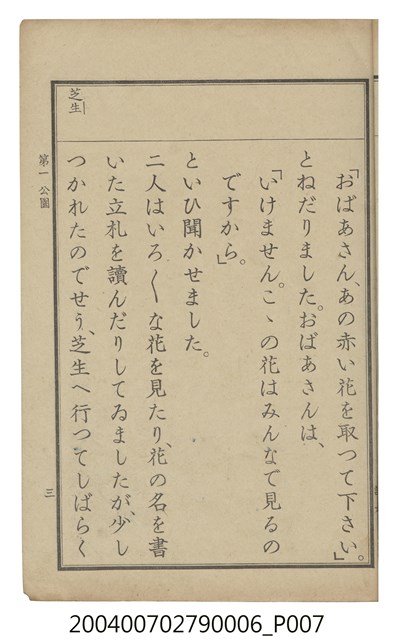 芝生
「おばあさん、あの赤い花を取つて下さい。」
とねだりました。おばあさんは、
「いけません。こゝの花はみんなで見るの
ですから。」
といひ聞かせました。
二人はいろ〱な花を見たり、花の名を書
いた立札を讀んだりしてゐましたが、少し
つかれたのでせう、芝生へ行つてしばらく
第一 公園
三
200400702790006_P007